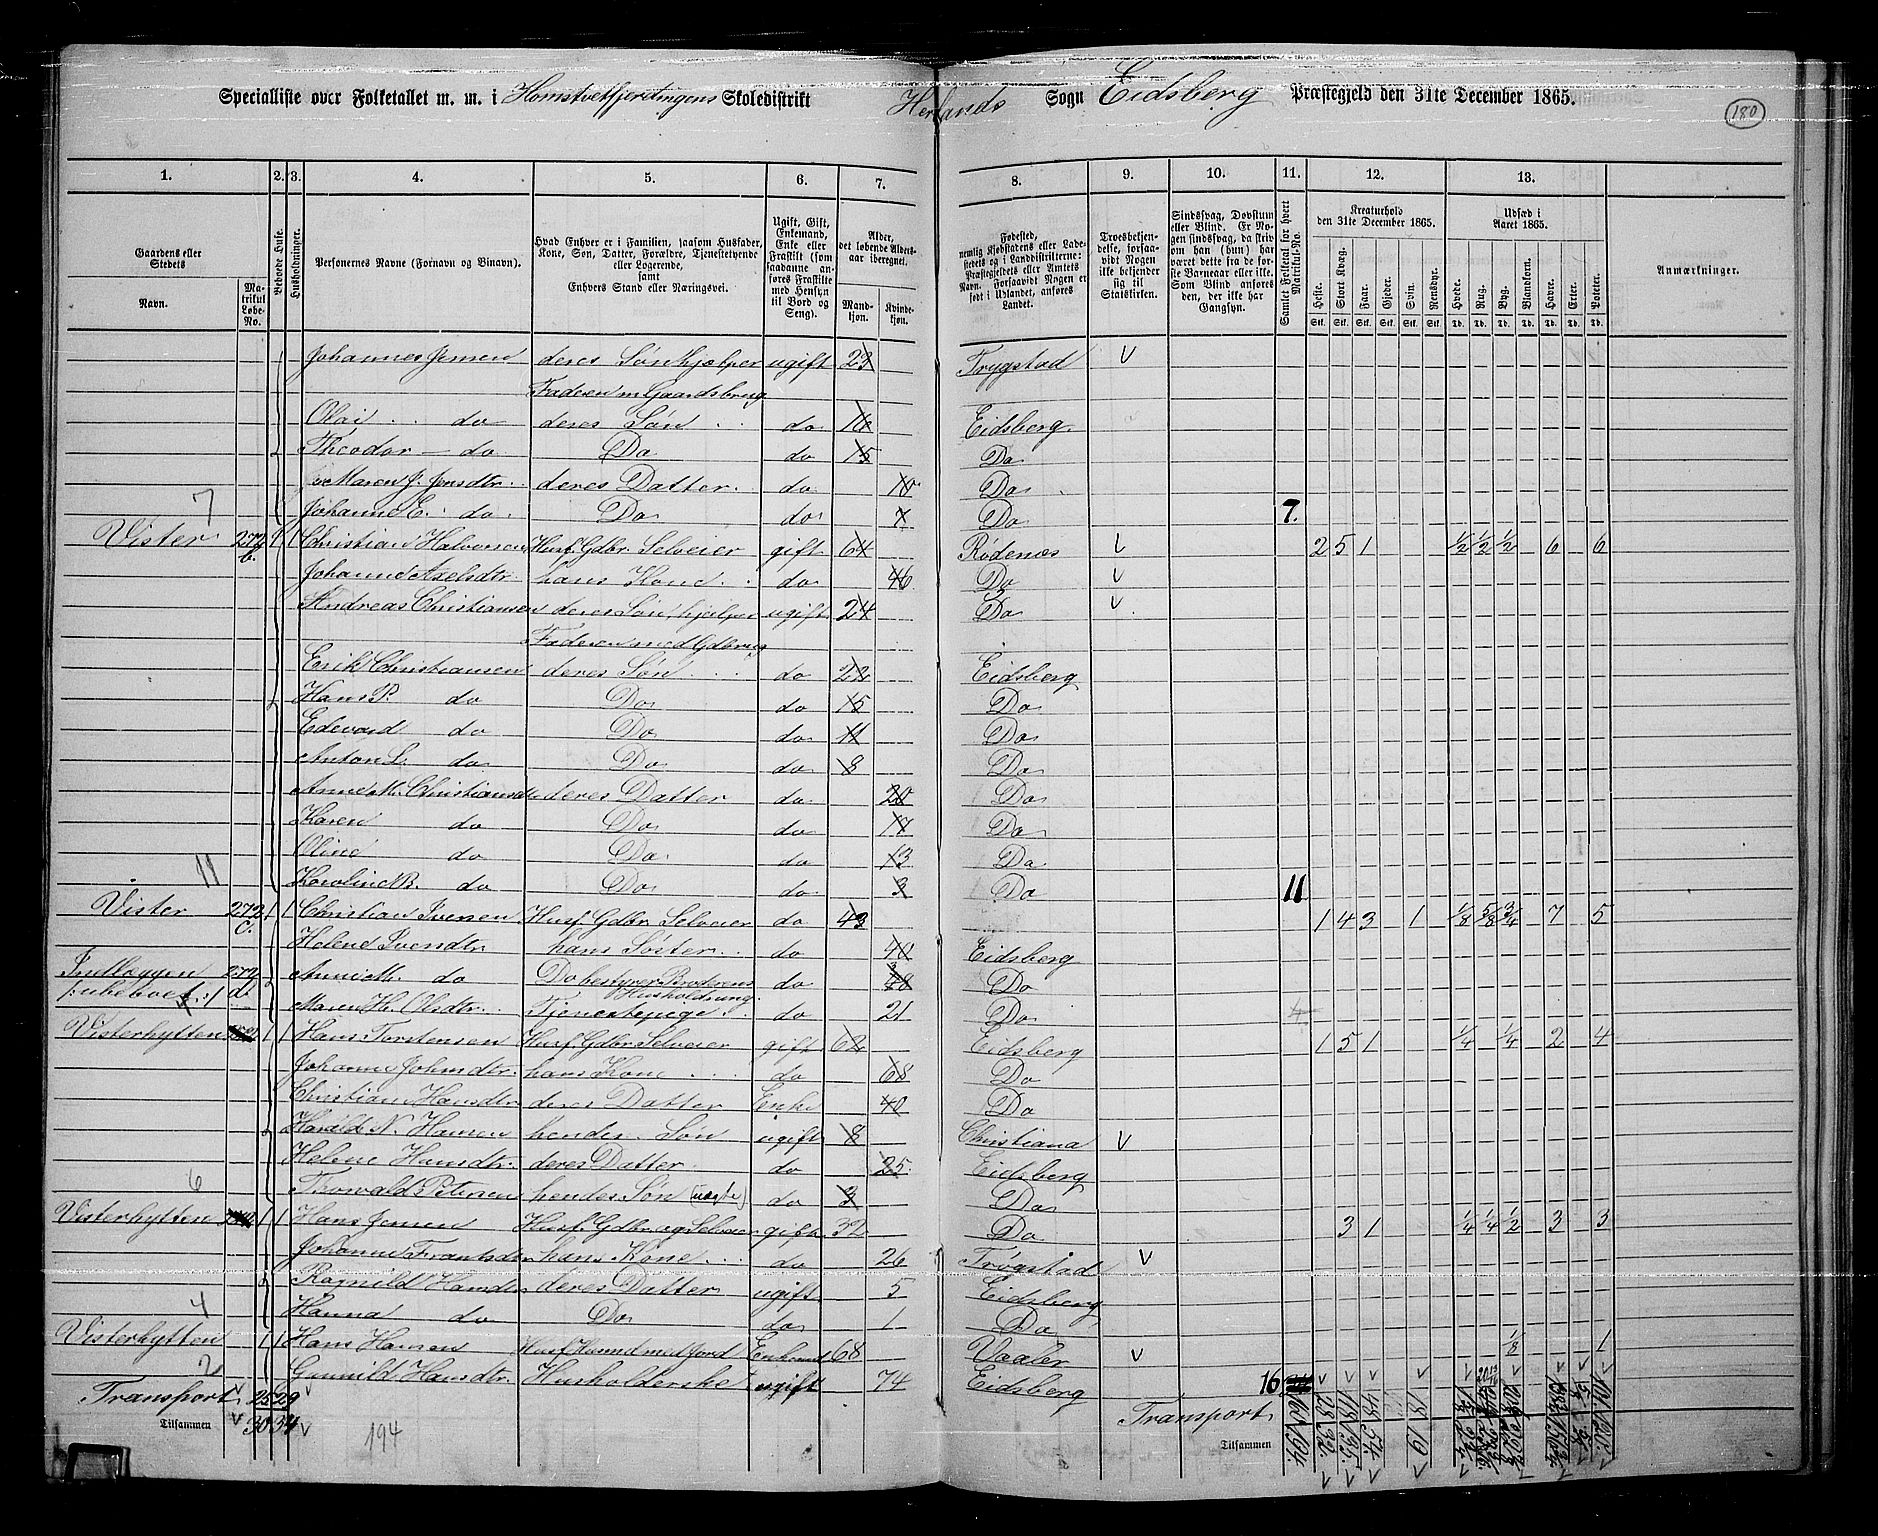 Specialliste over Folketallet m. m. i Homstvetfjerdingens Skoledistrikt Herlands Sogn Eidsberg Præstegjeld den 31te December 1865.
180
1. 2. 3. 4. 5. 6. 7. 8. 9. 10. 11. 12. 13.
Gaardens eller Stedets
Navn.
Matrikul Løbe-No.
Beboede Huse.
Husholdninger.
Personernes Navne (Fornavn og Binavn).
Hvad Enhver er i Familien, saasom Husfader, Kone, Søn, Datter, Forældre, Tjenestetyende eller Logerende, samt Enhvers Stand eller Næringsvei.
Ugift, Gift, Enkemand, Enke eller Fraskilt (som saadanne anføres Fraskilte med Hensyn til Bord og Seng).
Alder, det løbende Aldersaar iberegnet.
Mandkjøn.
Kvindekjøn.
Fødested, nemlig Kjøbstadens eller Ladestedets og i Landdistrikterne: Præstegjeldets eller Amtets Navn. Forsaavidt Nogen er født i Udlandet, anføres Landet.
Troesbekjendelse, forsaavidt Nogen ikke bekjender sig til Statskirken.
Sindssvag, Døvstum eller Blind. Er Nogen sindssvag, da skriv om han (hun) har været dette fra de første Barneaar eller ikke. Som Blind anføres den, der ikke har Gangsyn.
Samlet Folketal for hvert Matrikul-No.
Kreaturhold den 31te December 1865.
Heste. Stort Kvæg. Faar. Gjeder. Svin. Rensdyr.
Udsæd i Aaret 1865.
Hvede. Rug. Byg. Blandkorn. Havre. Erter. Poteter.
Anmærkninger.
Johannes Jensen deres Søn hjælper ugift 23 Trygstad V
Faderen m Gaardsbrug
Olai do deres Søn do 16 Eidsberg.
Theodor do Do do 15 Do
Maren J. Jensdtr. deres Datter. do 10 Do
7 Johanne E. do Do do 7 Do 7.
Vister 272 b. 1 1 Christian Halvorsen Husf. Gdbr. Selveier gift 64 Rødenæs V 2 5 1 1/2 1/2 1/2 6 6
Johanne Axelsdtr. hans Kone do 46 Do V
Andreas Christiansen deres Søn, hjælper ugift 24 Do V
Faderen med Gdbrug
Erik Christiansen deres Søn do 22 Eidsberg
Hans P. do Do do 15 Do
Edevard do Do do 11 Do
Anton L. do Do do 8 Do
Anne M. Christiansdtr deres Datter do 20 Do
Karen do Do do 17 Do
Oline do Do do 13 Do
11 Karoline B. do Do do 3 Do 11
Vister 272 c. 1 1 Christian Svensen Husf. Gdbr. Selveier do 43 1 4 3 1 1/8 5/8 3/4 7 5
Helene Svendtr. hans Søster do 40 Eidsberg
272 d Anne M. do Do bestyrer Broderens do 48 Do
Husholdning.
/:ubeboet:/ 4 Maren H. Olsdtr. Tjenestepige do 21 Do 4
Visterhytten 1 1 Hans Torstensen Husf. Gdbr. Selveier gift 62 Eidsberg 1 5 1 1/4 1/4 2 4
Johanne Johnsdtr. hans Kone do 68 Do
Christian Hansdtr deres Datter Enke 40 Do
Harald N. Hansen hendes Søn ugift 8 Christiana V
Helene Hansdtr. deres Datter do 25 Eidsberg
6 Thorvald Petersen hendes Søn (uægte) do 3 Do
Visterhytten 1 1 Hans Jensen Husf. Gdbr og Selveier gift 32 Do 3 1 1/4 1/4 1/2 3 3
Johanne Frantsdtr hans Kone do 26 Trøgstad V
Ragnild Hansdtr deres Datter ugift 5 Eidsberg
4 Hanna do Do do 1 Do
Visterhytten 1 1 Hans Hansen Husf. Husmd med Jord Enkemd 68 Vaaler V 1/8 1
2 Gunnild Hansdtr. Husholderske ugift 74 Eidsberg 16
Transport 25 29 Transport
Tilsammen 30 34 194 Tilsammen 194.